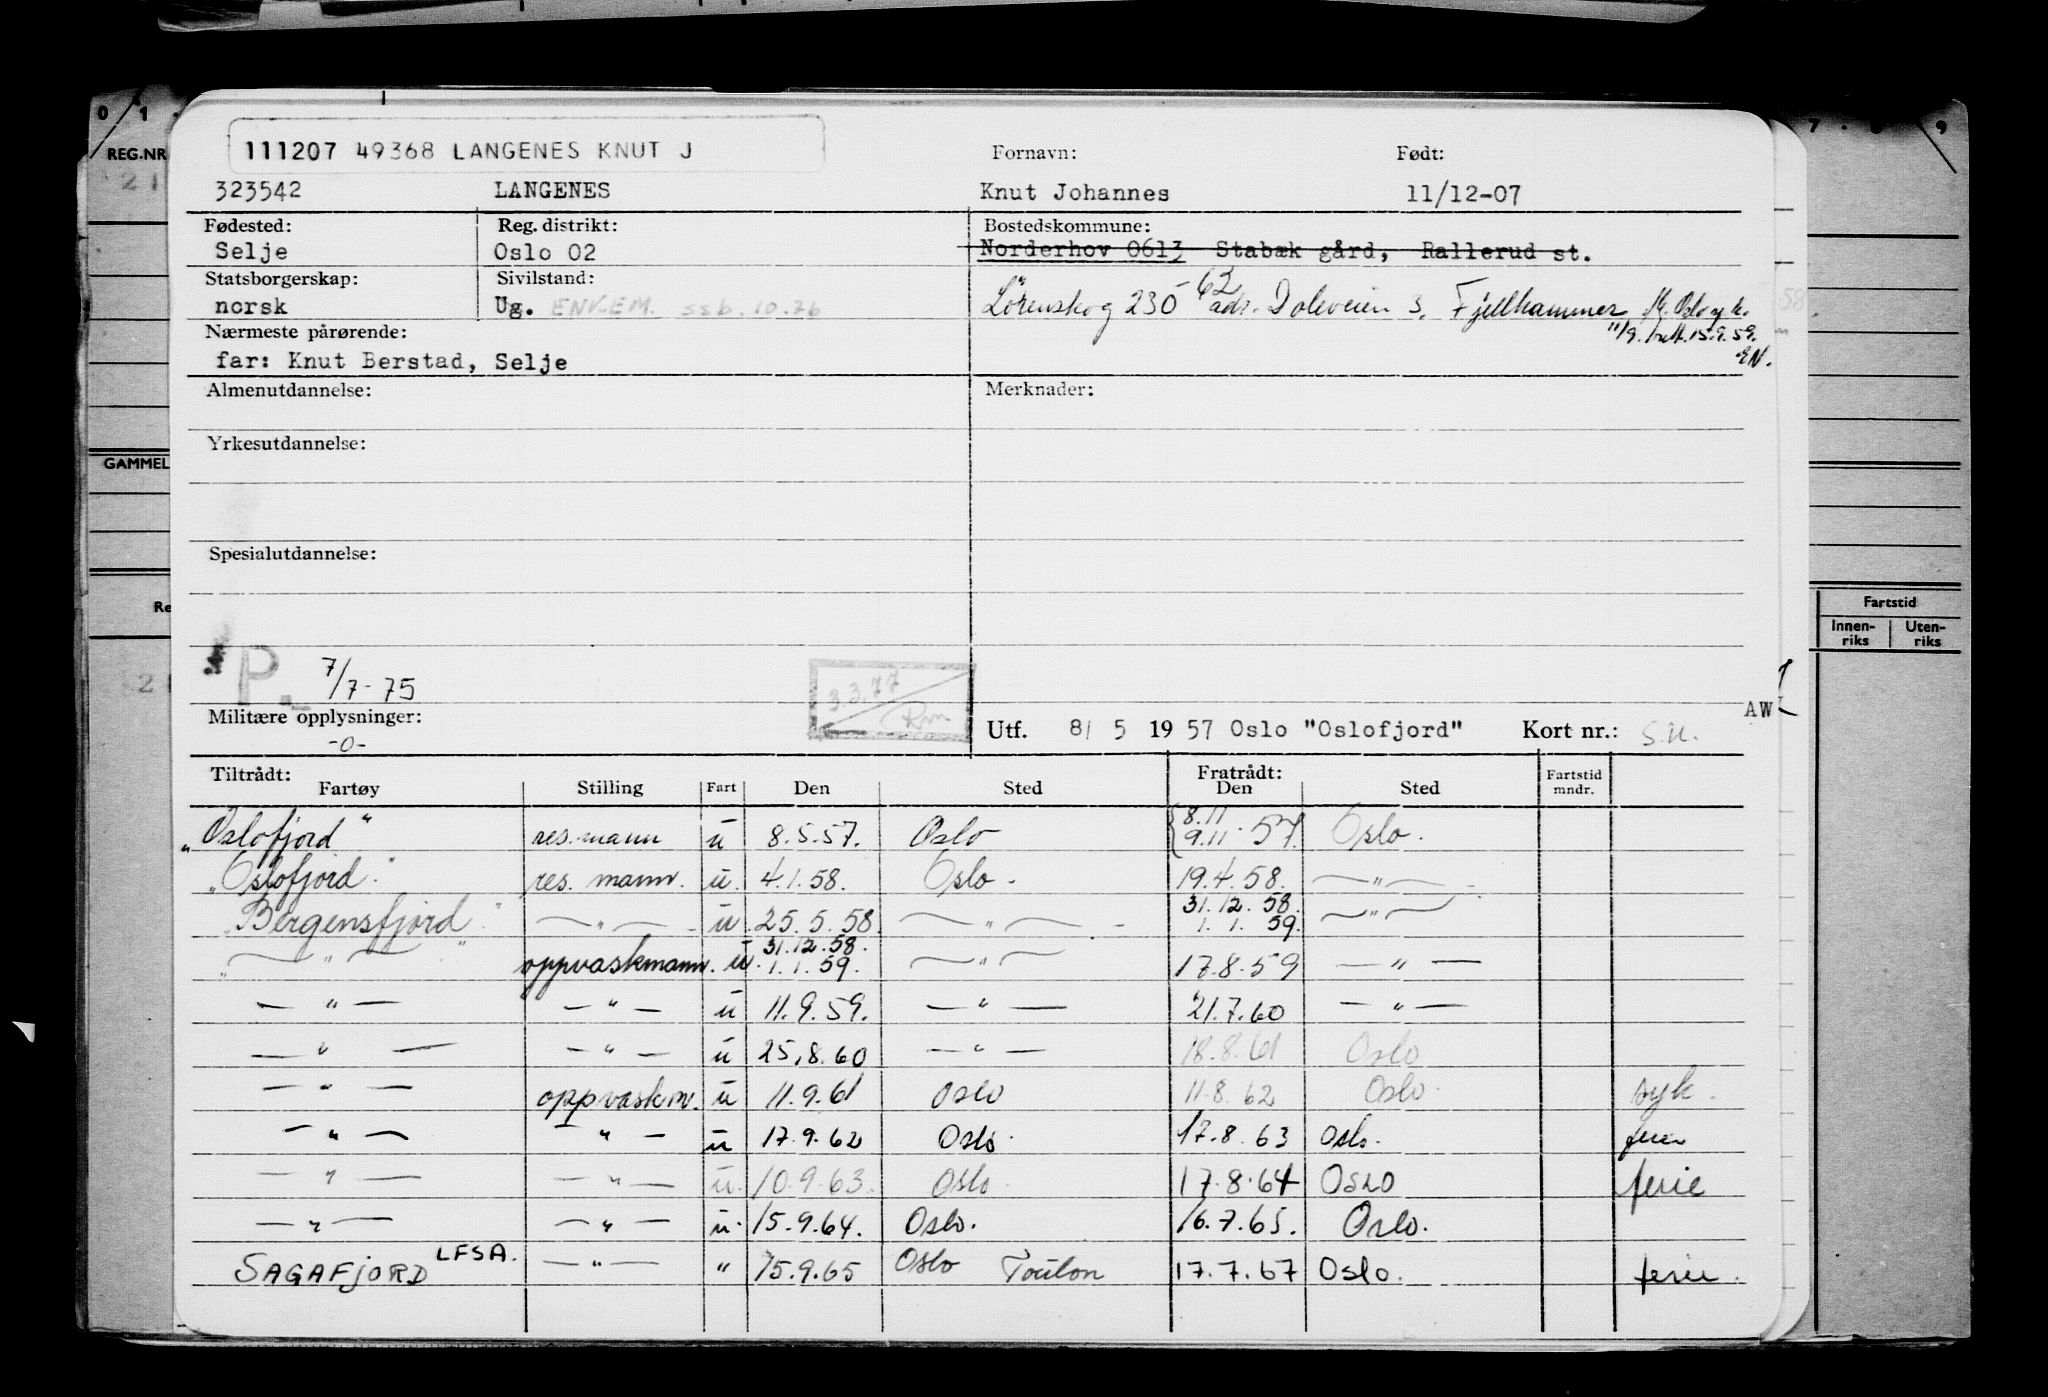 0 1 . 7 . 8 9
REG.NR
111207 49368 LANGENES KNUT J Fornavn: Født:
323542 LANGENES Knut Johannes 11/12-07
Fødested: Reg. distrikt: Bostedskommune:
Selje Oslo 02 Norderhov 0613 Stabæk gård, Rallerud st.
Statsborgerskap: Sivilstand:
norsk Ug. ENK.EM. ssb.10.76 Lørenskog 230 62 adr. Doleveien 3, Fjellhammer
Nærmeste pårørende: 11/9. 15.9.59.
far: Knut Berstad, Selje EN.
Almenutdannelse: Merknader:
Yrkesutdannelse:
GAMMEL
Spesialutdannelse:
Re Fartstid
Innen-riks Uten-riks
P. 7/7-75 3.3.77 Rm
AW
Militære opplysninger: Utf. 8/ 5 19 57 Oslo "Oslofjord" Kort nr.: S.U.
-0-
Tiltrådt: Fratrådt: Fartstid
Fartøy Stilling Fart Den Sted Den Sted mndr.
"Oslofjord" res.mann u 8.5.57. Oslo {8.11 9.11.57. Oslo.
"Oslofjord" res. mann. u. 4.1.58. Oslo. 19.4.58. —"—
"Bergensfjord" —"— u 25.5.58 —"— 31.12.58. 1.1.59. —"—
"—"—" oppvaskmann. u. 31.12.58. 1.1.59. —"— 17.8.59 —"—
—"— —"— u 11.9.59. —"— 21.7.60 —"—
—"— —"— u 25.8.60 —"— 18.8.61 Oslo
—"— oppvaskm. u 11.9.61 Oslo 11.8.62 Oslo. syk.
—"— "— u 17.9.62 Oslo. 17.8.63 Oslo. ferie
—"— —"— u. 10.9.63. Oslo. 17.8.64 OSLO ferie
—"— —"— u. 15.9.64. Oslo. 16.7.65. Oslo.
SAGAFJORD LFSA. —"— " 15.9.65 Oslo Toulon 17.7.67 Oslo. ferie.